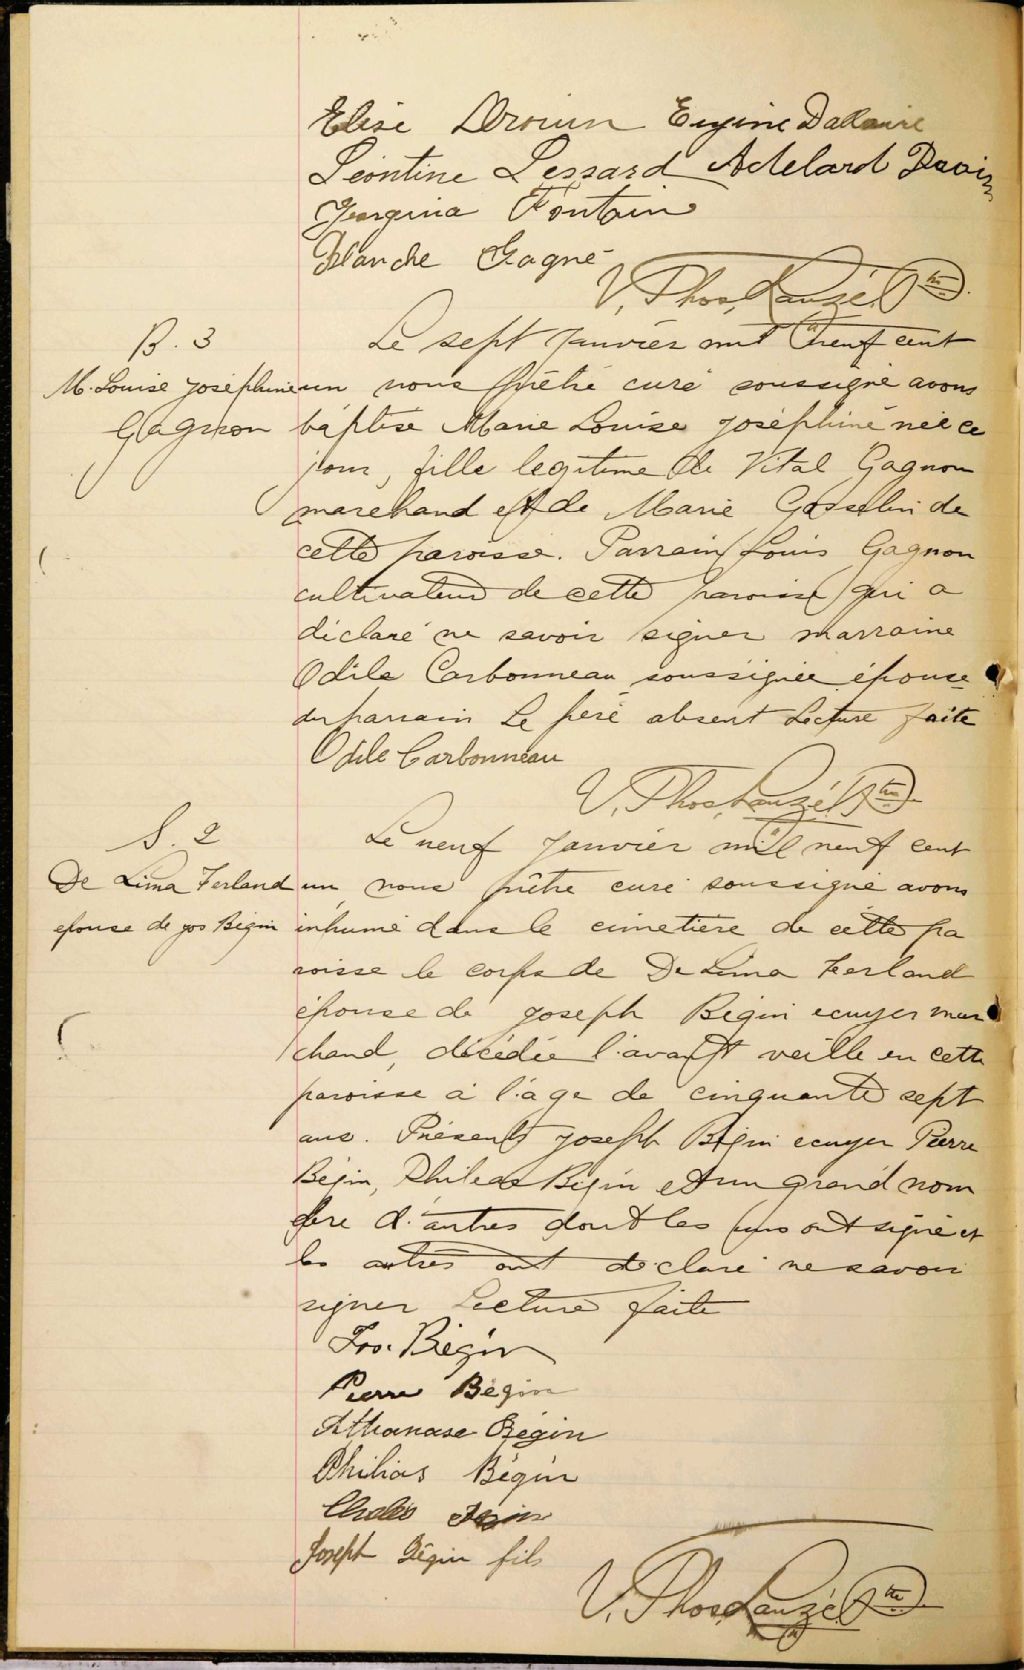 Elise Drouin Eugène Dallaire
Léontine Lessard Adelard
Georgina Fontaine
Blanche Gagné
V. Thos. Lauzé Ptre
B. 3
M. Louise Joséphine
Gagnon
Le sept Janvier mil neuf cent
un nous prêtre curé soussigné avons
baptisé Marie Louise Joséphine née ce
jour, fille legitime de Vital Gagnon
marchand et de Marie Gosselin de
cette paroisse. Parrain Louis Gagnon
cultivateur de cette paroisse qui a
déclaré ne savoir signer marraine
Odile Carbonneau soussignée épouse
du parrain Le père absent Lecture faite
Odile Carbonneau
V. Thos. Lauzé Ptre
S. 2
De Lima Ferland
epouse de Jos Bégin
Le neuf Janvier mil neuf cent
un nous prêtre curé soussigné avons
inhumé dans le cimetière de cette pa
roisse le corps de De Lima Ferland
épouse de Joseph Bégin ecuyer mar
chand, décédée l'avant veille en cette
paroisse à l'âge de cinquante sept
ans. Présents Joseph Bégin ecuyer Pierre
Bégin, Phileas Bégin et un grand nom
bre d'autres dont les uns ont signé et
les autres ont declaré ne savoir
signer Lecture faite
Jos. Bégin
Pierre Bégin
Athanase Bégin
Philias Bégin
Joseph Bégin fils
V. Thos. Lauzé Ptre